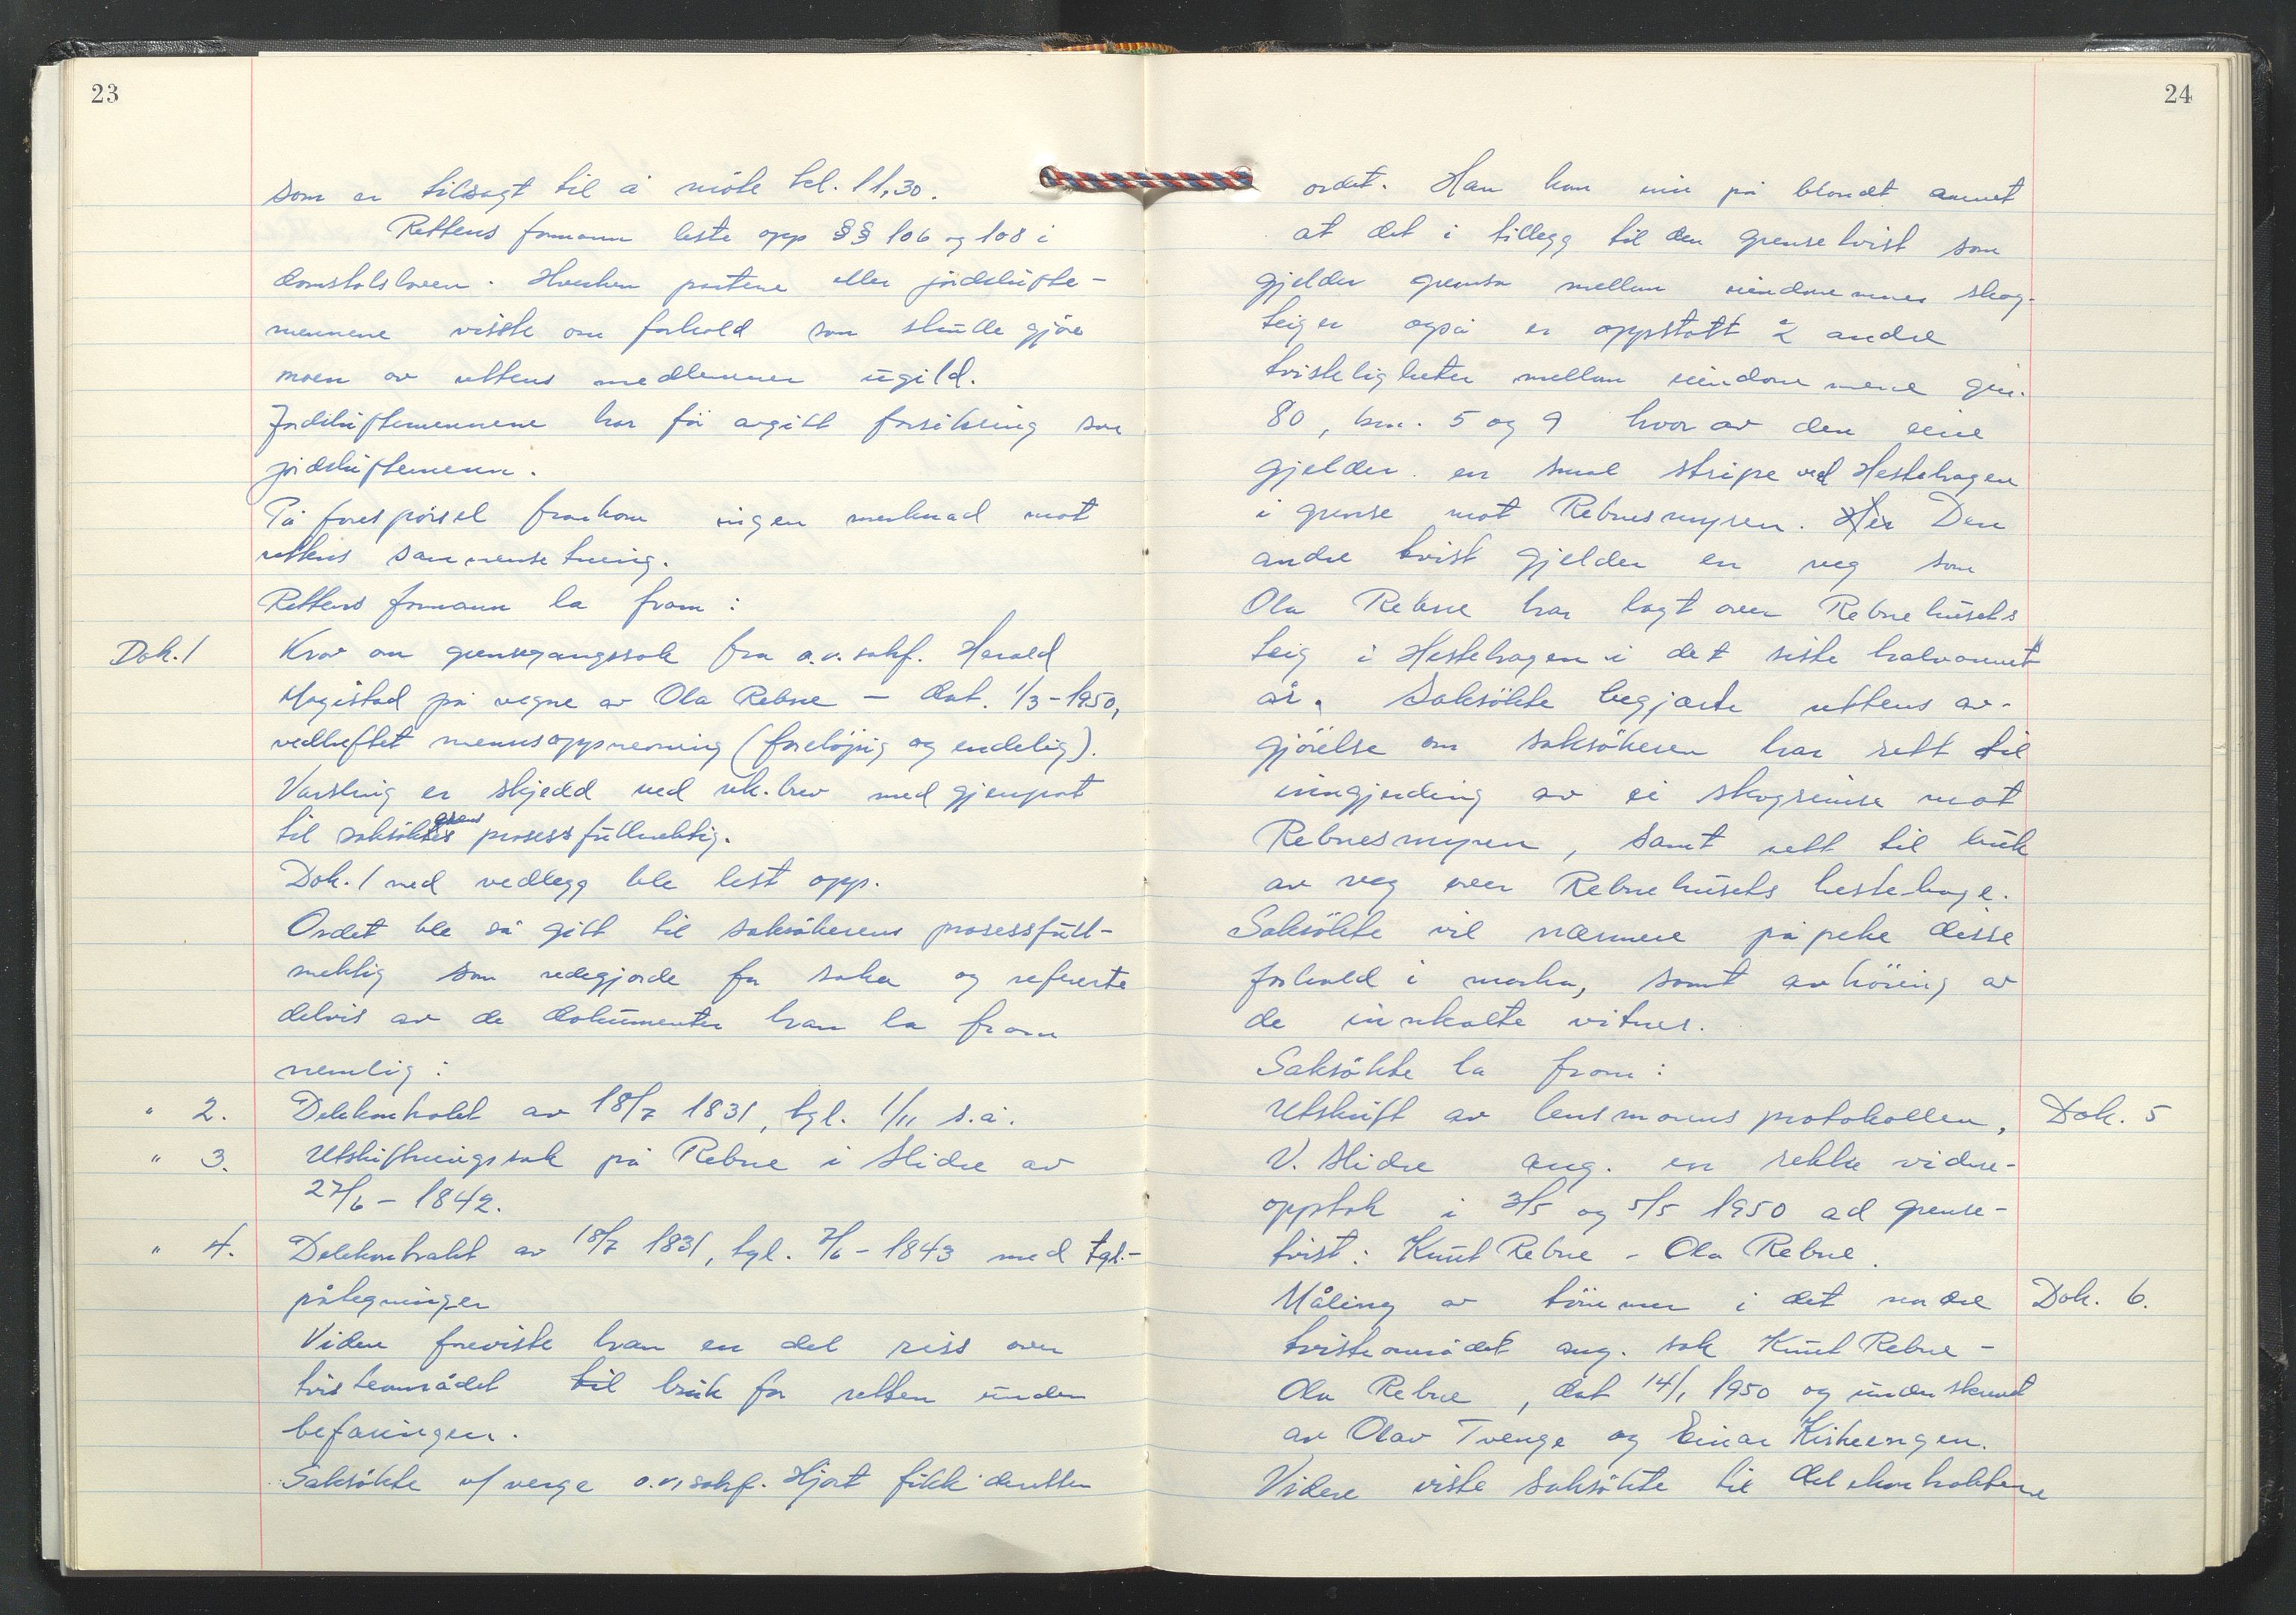 23
som er tilsagt til å möte kl. 11,30.
Rettens formann leste opp §§ 106 og 108 i
domstolsloven. Hverken partene eller jordskifte-
mennene visste om forhold som skulle gjöre
noen av rettens medlemmer ugild.
Jordskiftemennene har för avgitt forsikring som
jordskiftemenn.
På forespörsel framkom ingen merknad mot
rettens sammensetning.
Rettens formann la fram:
Dok. 1 Krav om grensegangssak fra o.r.sakf. Harald
Magistad på vegne av Ola Rebne – dat. 1/3-1950,
vedheftet mennsoppnevning (forelöpig og endelig).
Varsling er skjedd ved rek.brev med gjenpart
til saksöktes prosessfullmektig.
Dok. 1 med vedlegg ble lest opp.
Ordet ble så gitt til saksökerens prosessfull-
mektig som redegjorde for saka og refererte
delvis av de dokumenter han la fram
nemlig:
" 2. Delekontrakt av 18/7 1831, tgl. 1/11 s.å.
" 3. Utskiftningssak på Rebne i Slidre av
27/6 – 1842.
" 4. Delekontrakt av 18/7 1831, tgl. 7/6 – 1843 med tgl.-
påtegninger
Videre foreviste han en del riss over
tvisteområdet til bruk for retten under
befaringen.
Saksökte v/ verge o.r.sakf. Hjort fikk deretter
24
ordet. Han kom inn på blandt annet
at det i tillegg til den grensetvist som
gjelder grensa mellom eiendommenes skog-
teiger også er oppstått 2 andre
tvisteligheter mellom eiendommene gnr.
80, bnr. 5 og 9 hvor av den eine
gjelder en smal stripe ved Hestehagen
i grense mot Rebnesmyren. Her Den
andre tvist gjelder en veg som
Ola Rebne har lagt over Rebnehusets
teig i Hestehagen i det siste halvannet
år. Saksökte begjærte rettens av-
gjörelse om saksökeren har rett til
inngjerding av ei skogreinse mot
Rebnesmyren, samt rett til bruk
av veg over Rebnehusets hestehage.
Saksökte vil nærmere påpeke disse
forhold i marka, samt avhöring av
de innkalte vitner.
Saksökte la fram:
Utskrift av lensmannsprotokollen, Dok. 5
V. Slidre ang. en rekke vidne-
opptak i 3/5 og 5/5 1950 ad grense-
tvist: Knut Rebne – Ola Rebne.
Måling av tömmer i det nedre Dok. 6.
tvisteområdet ang. sak Knut Rebne –
Ola Rebne, dat 14/1 1950 og underskrevet
av Olav Tvenge og Einar Kirkeengen.
Videre viste saksökte til delekontraktene